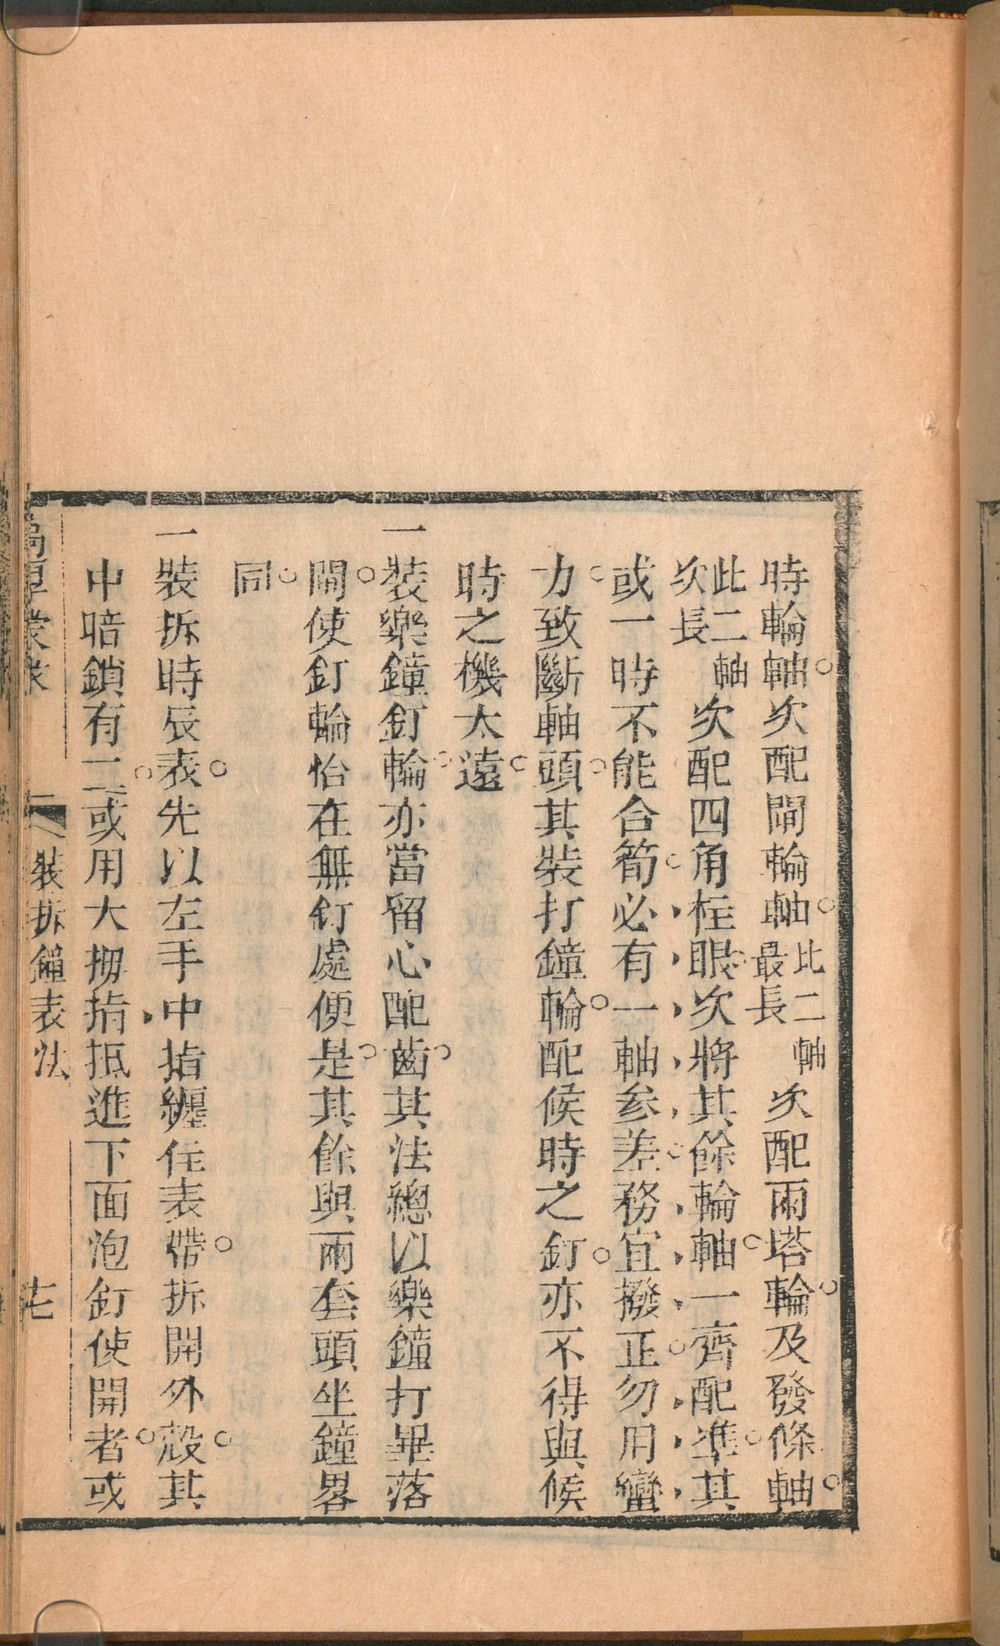 時輪軸。次配閘輪軸。比二軸最長次配兩塔輪。及發條軸。
此二軸次長次配四角柱眼。次將其餘輪軸。一齊配準。其
或一時不能合筍。必有一軸參差。務宜撥正。勿用蠻
力。致斷軸頭。其裝打鐘輪。配候時之釘。亦不得與候
時之機太遠。
一裝樂鐘釘輪。亦當留心配齒。其法總以樂鐘打畢落
閘。使釘輪恰在無釘處便是。其餘與兩套頭坐鐘畧
同。
一裝拆時辰表。先以左手中指纏住表帶。拆開外殼。其
中暗鎖有二。或用大拇指抵進下面泡釘使開者。或
裝拆鐘表法
七